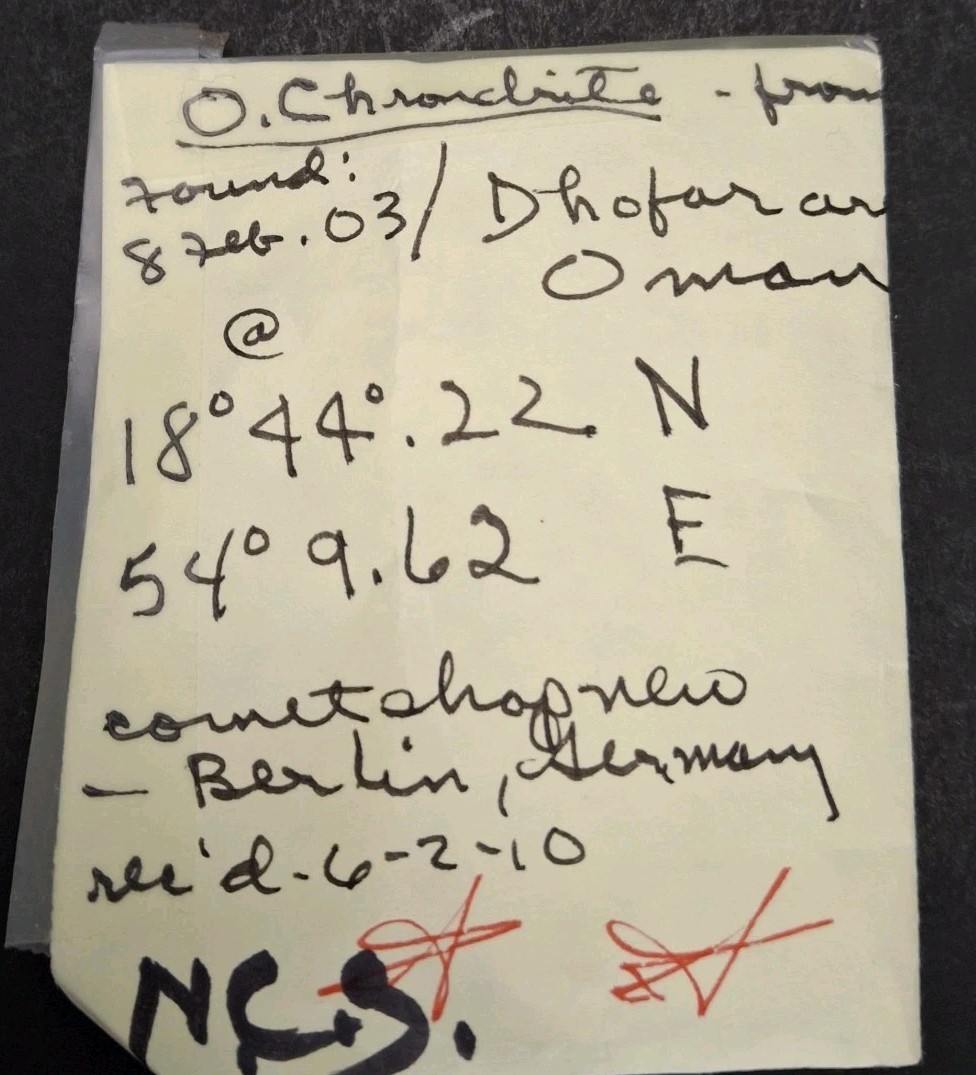 O. Chrondrite - from
Found:
8 Feb. 03 / Dhofar ar
Oman
@
18° 44°.22 N
54° 9.62 E
cometshopnew
- Berlin, Germany
rec'd. 6-2-10
N.C.S.